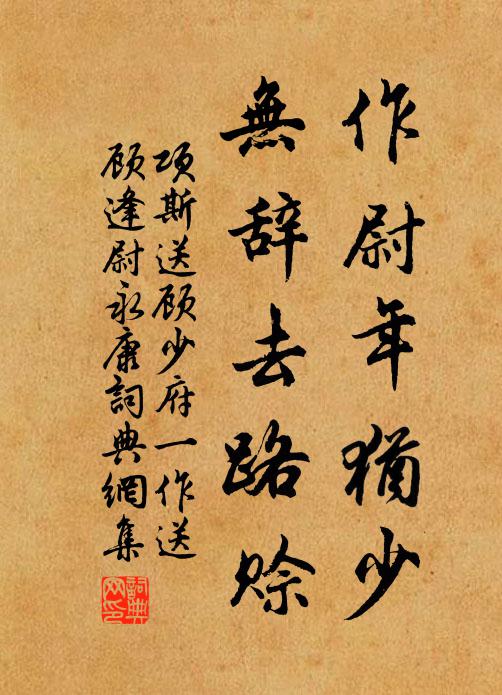 作尉年猶少
無辞去路赊
项斯送顾少府一作送
顾逢尉永康詞典網集
詞典網印